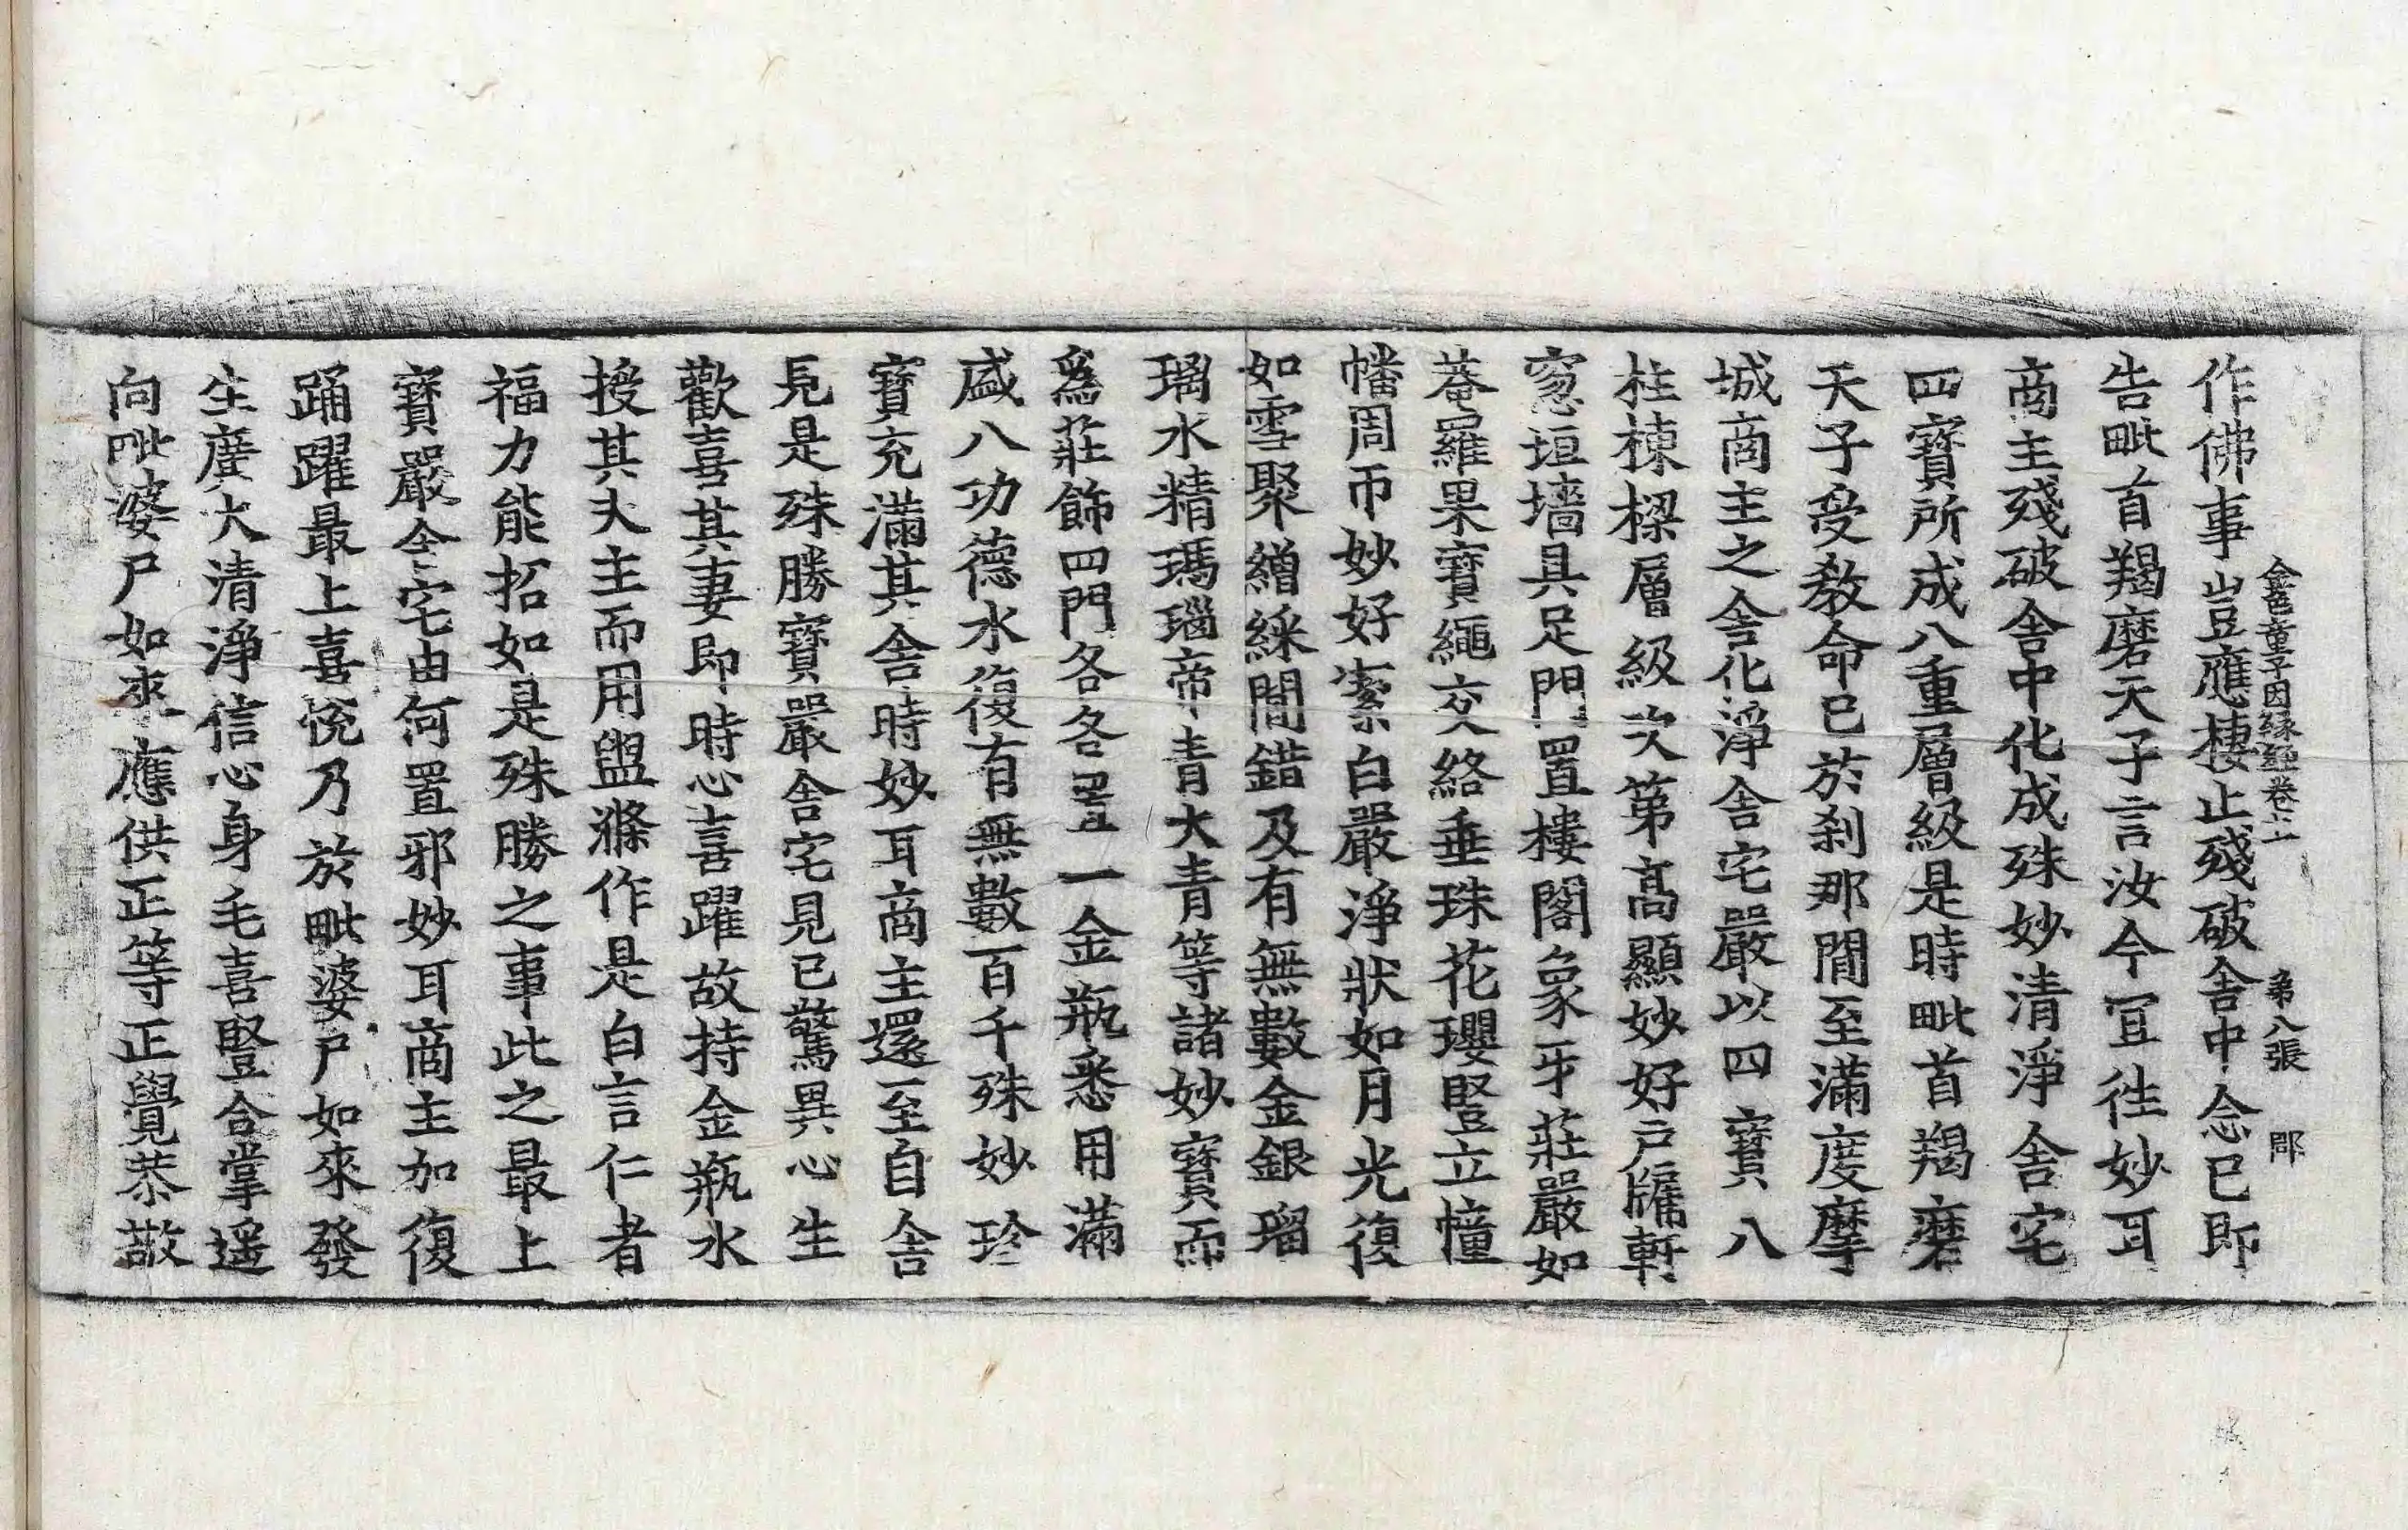 金色童子因緣經卷上 第八張 郡
作佛事豈應棲止殘破舍中念已即
告毗首羯磨天子言汝今宜往妙耳
商主殘破舍中化成殊妙清淨舍宅
四寶所成八重層級是時毗首羯磨
天子受教命已於剎那間至滿度摩
城商主之舍化淨舍宅嚴以四寶八
柱棟樑層級次第高顯妙好戶牖軒
窓垣墻具足門置樓閣象牙莊嚴如
菴羅果寶繩交絡垂珠花瓔豎立幢
幡周帀妙好縈白嚴淨狀如月光復
如雪聚繒綵間錯及有無數金銀瑠
璃水精瑪瑙帝青大青等諸妙寶而
爲莊飾四門各各置一金瓶悉用滿
盛八功德水復有無數百千殊妙珍
寶充滿其舍時妙耳商主還至自舍
見是殊勝寶嚴舍宅見已驚異心生
歡喜其妻即時心喜躍故持金瓶水
授其夫主而用盥滌作是白言仁者
福力能招如是殊勝之事此之最上
寶嚴舍宅由何置邪妙耳商主加復
踊躍最上喜悅乃於毗婆尸如來發
生廣大清淨信心身毛喜豎合掌遥
向毗婆尸如來應供正等正覺恭敬